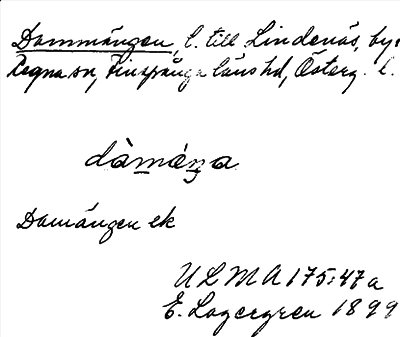 Dammängen, l. till Lindenäs, by:
Regna sn, Finspånga läns hd, Österg. l.
dàmæŋa
Damängen ek
ULMA 175:47a
E. Lagergren 1899